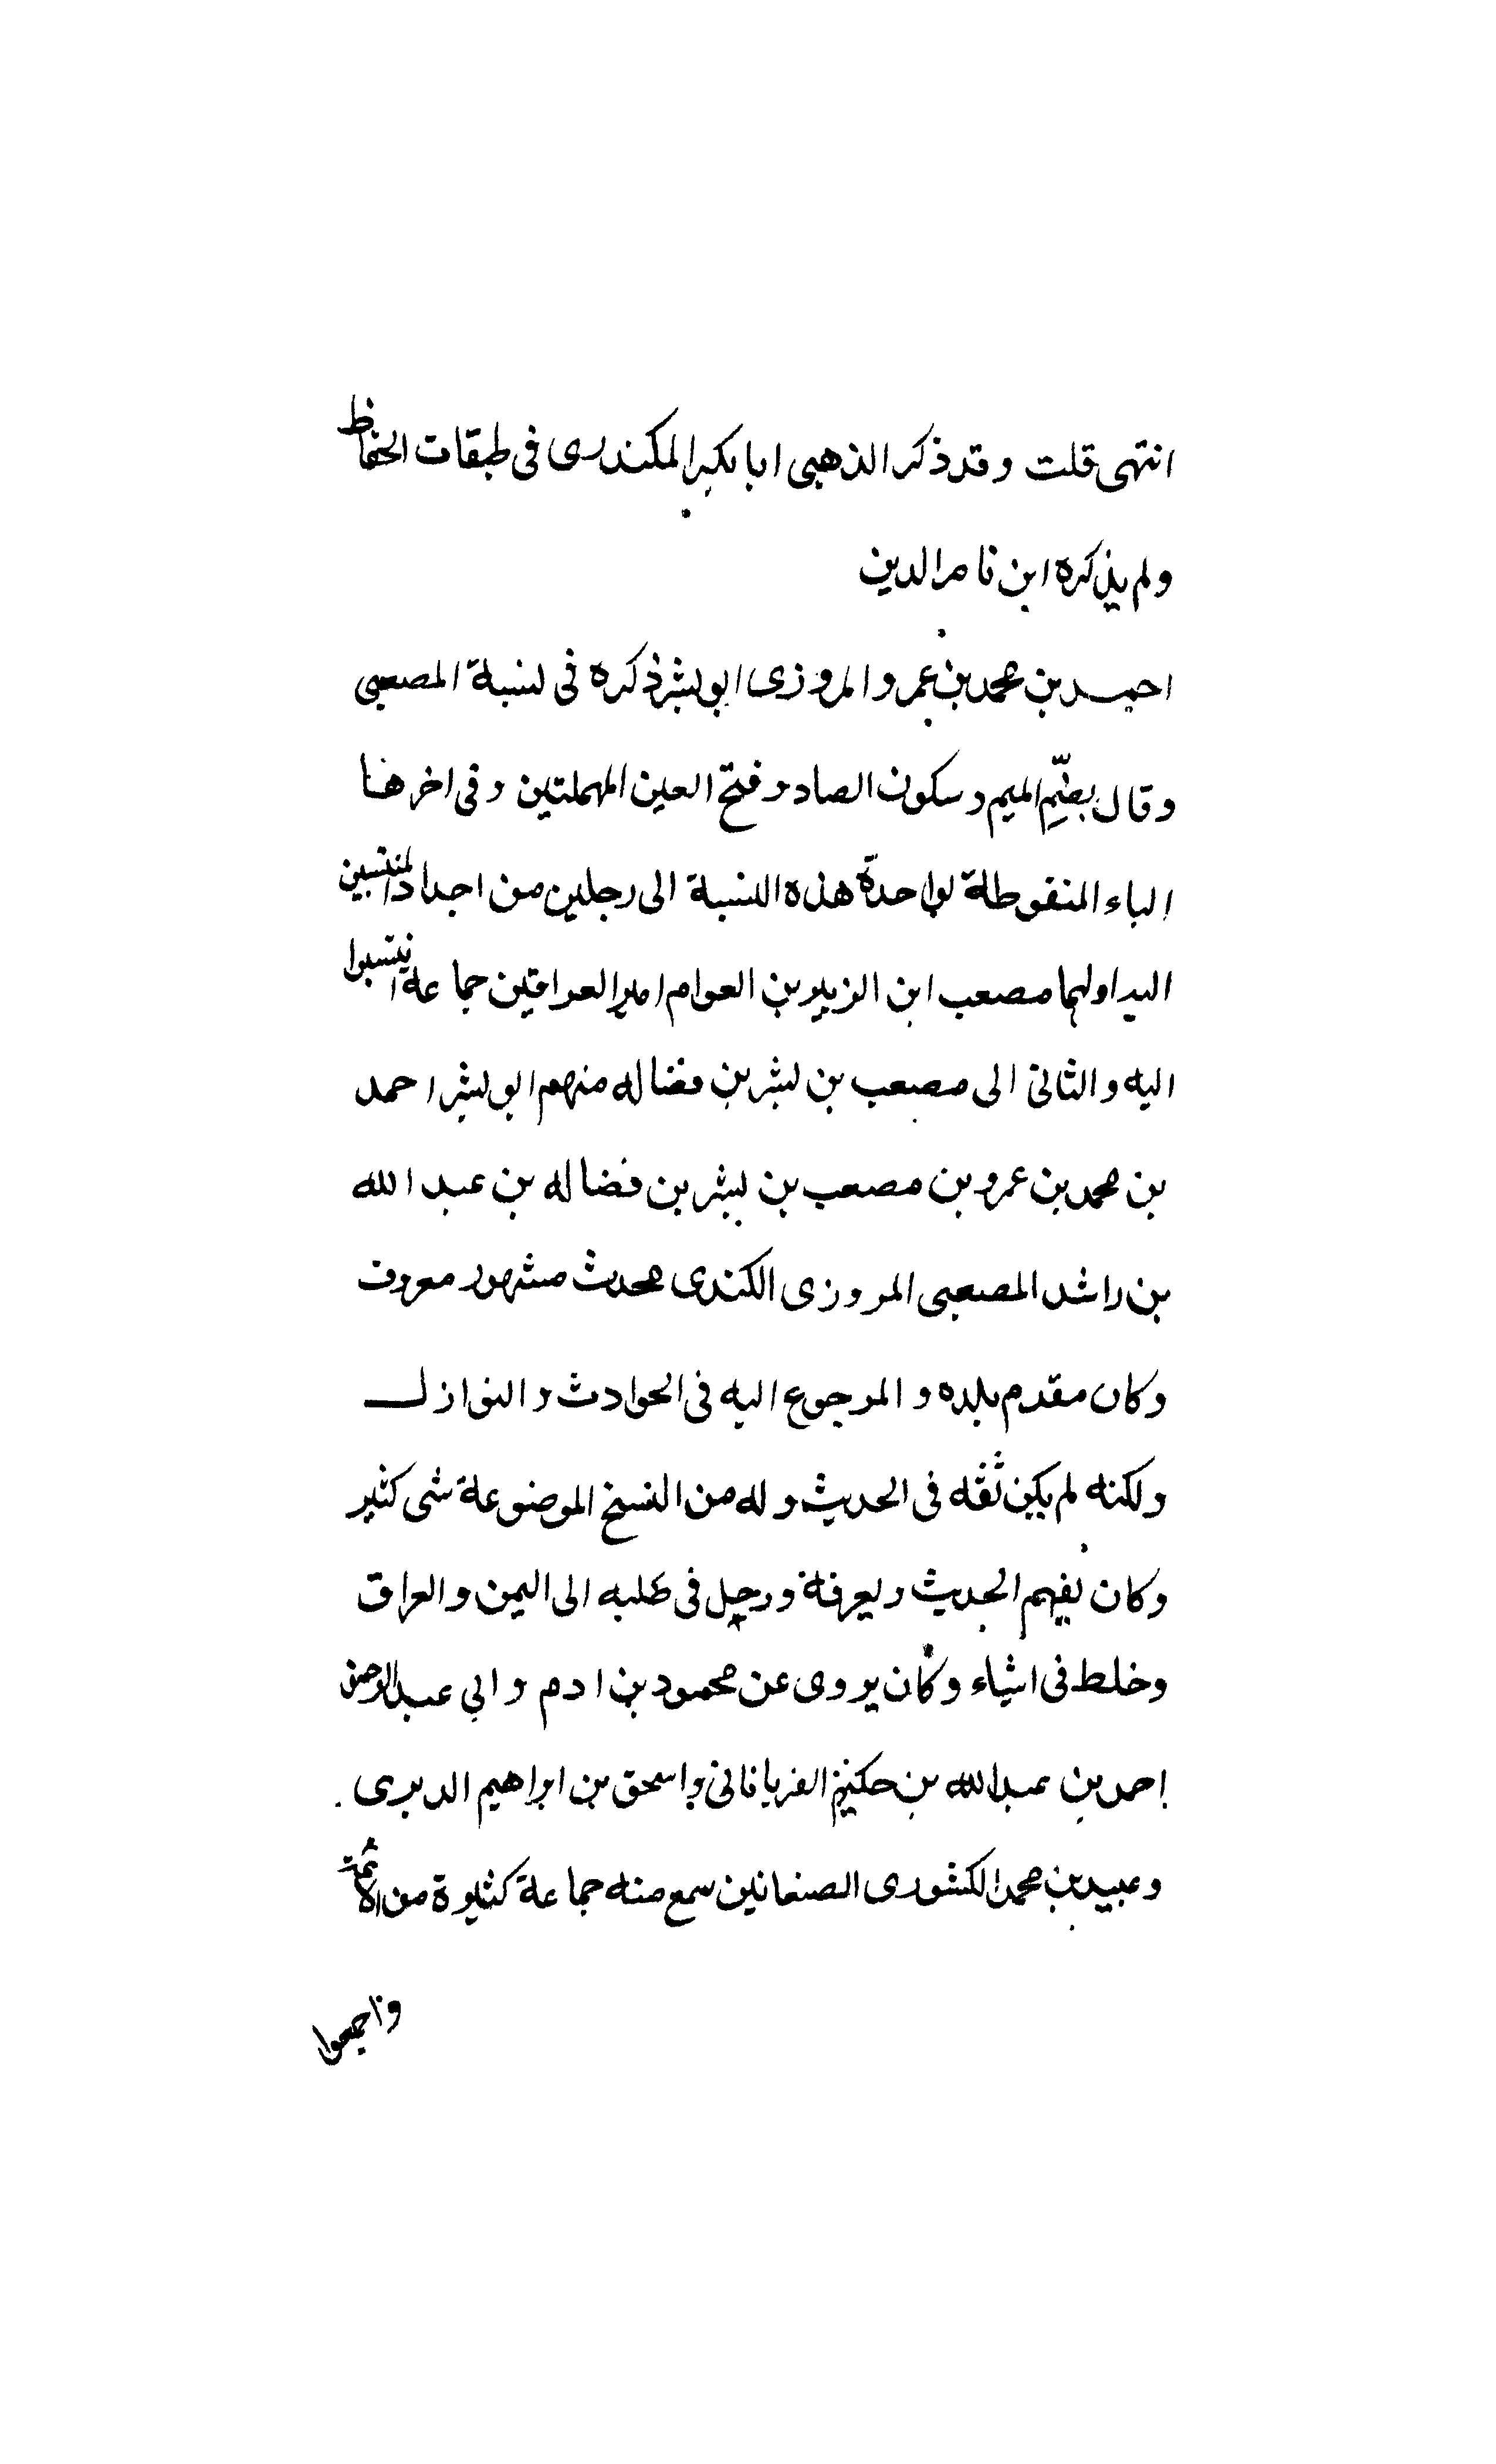 انتهى قلت وقد ذكر الذهبي ابا بكر المكندرى فى طبقات الحفاظ
ولم يذكره ابن ناصر الدين
احمد بن محمد بن عمرو المروزى ابو بشر ذكره فى نسبة المصعبى
وقال بضمِّ الميم وسكون الصاد وفتح العين المهملتين وفى اخرها
الباء المنقوطة بواحدة هذه النسبة الى رجلين من اجداد المنتسبين
اليه اولهما مصعب ابن الزبير بن العوام امير العراقين جماعة انتسبوا
اليه والثانى الى مصعب بن بشر بن فضاله منهم ابو بشر احمد
بن محمد بن عمرو بن مصعب بن بشر بن فضاله بن عبد الله
بن راشد المصعبى المروزى الكندى محدث مشهور معروف
وكان مقدم بلده والمرجوع اليه فى الحوادث والنوازل
ولكنه لم يكن ثقه فى الحديث وله من النسخ الموضوعة شى كثير
وكان يفهم الحديث ويعرفة ورحل فى طلبه الى اليمن والعراق
وخلط فى اشياء وكان يروى عن محمود بن ادم وابي عبد الرحمن
احمد بن عبد الله بن حكيم الفريانانى واسحق بن ابراهيم الدبرى
وعبيد بن محمد الكشورى الصنعانين سمع منه جماعة كثيرة من الائمة
واجمعوا